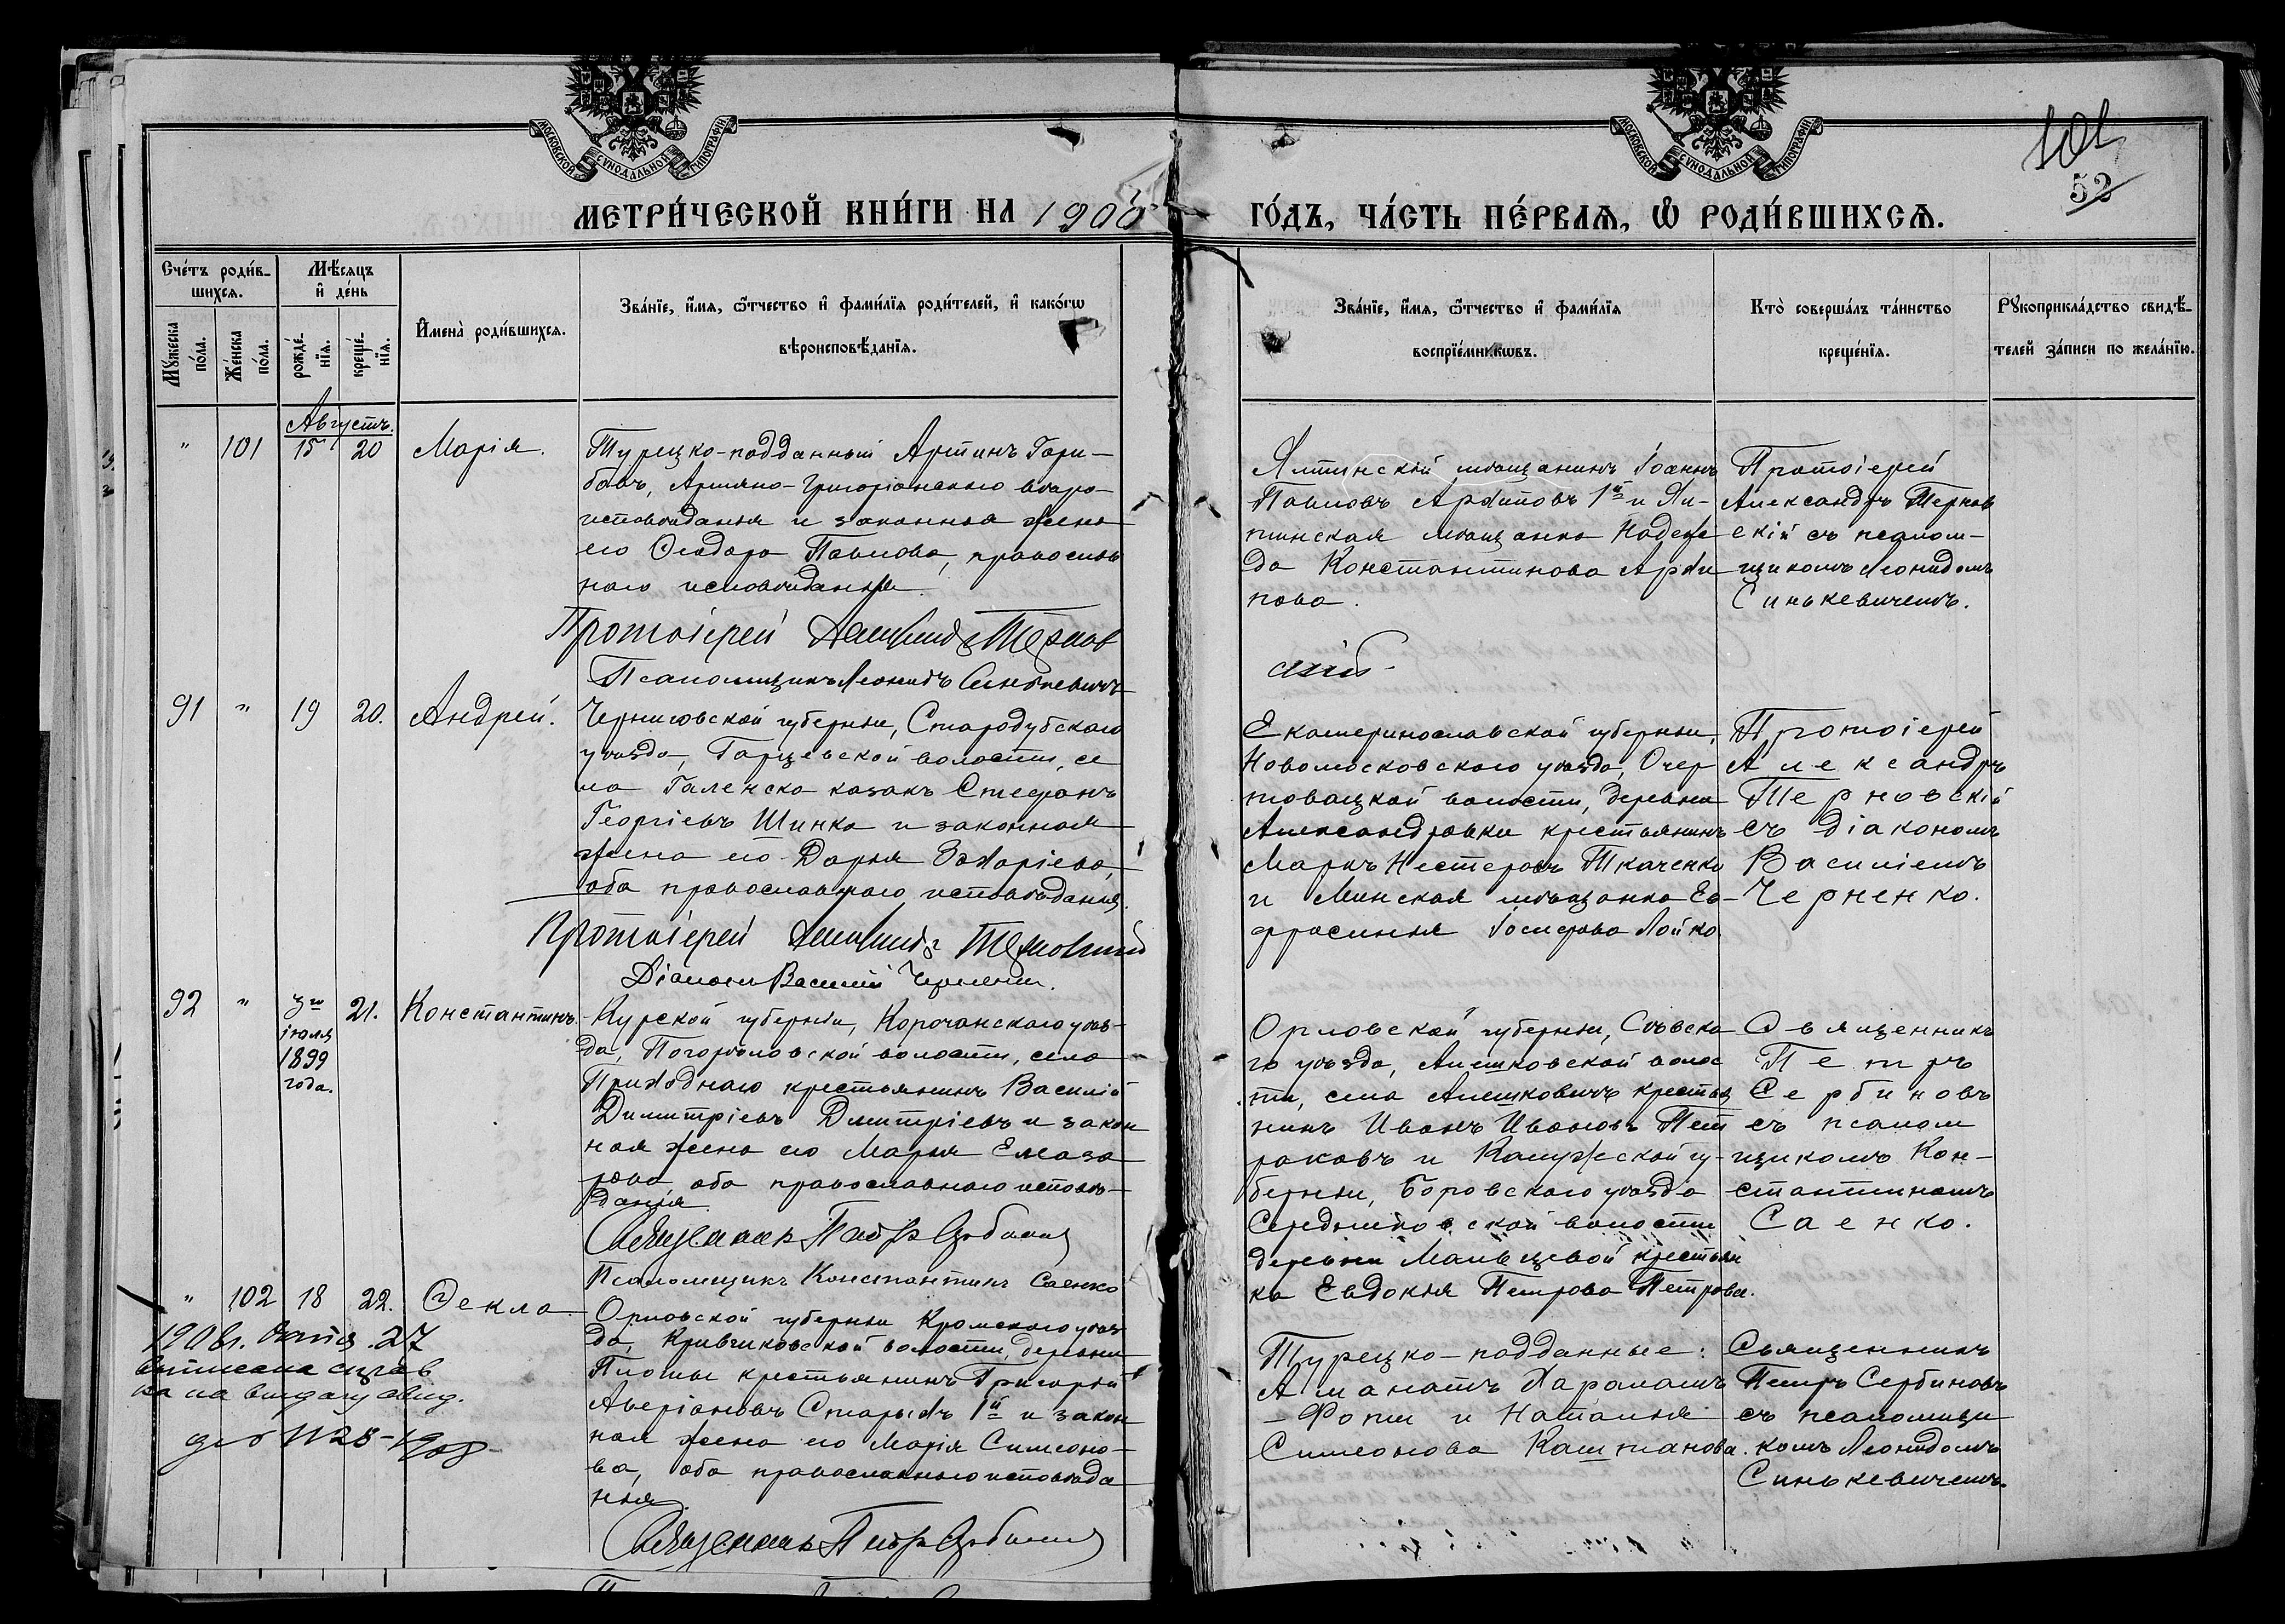 МОСКОВСКОЙ СѴНОДАЛЬНОЙ ТИПОГРАФІИ
МОСКОВСКОЙ СѴНОДАЛЬНОЙ ТИПОГРАФІИ
101
52
МЕТРИ́ЧЕСКОЙ КНИ́ГИ НА 1900
ГО́ДЪ, ЧА́СТЬ ПЕ́РВАѦ, Ѡ҆ РОДИ́ВШИХСѦ.
Сче́тъ роди́в-
шихсѧ.
Мѣ́сѧцъ
и҆ де́нь
Мꙋ́жеска
по́ла.
Же́нска
по́ла.
рожде́-
нїѧ.
креще́-
нїѧ.
И҆мена̀ роди́вшихсѧ.
Зва́нїе, и҆́мѧ, ѻ҆́тчество и҆ фами́лїѧ роди́телей, и҆ како́гѡ
вѣроисповѣ́данїѧ.
Зва́нїе, и҆́мѧ, ѻ҆́тчество и҆ фами́лїѧ
воспрїе́мникѡвъ.
Кто̀ соверша́лъ та́инство
креще́нїѧ.
Рꙋкоприкла́дство свидѣ́-
телей за́писи по жела́нїю.
Августъ.
" 101 15 20 Марія.
Турецко-подданный Артинъ Гари-
бовъ, Армяно-Григоріанскаго вѣро-
исповѣданія и законная жена
его Ѳеодора Павлова, православ
наго исповѣданія.
Протоіерей Александръ Тернов
Псаломщикъ Леонидъ Синькевичъ
Ялтинскій мѣщанинъ Іоаннъ
Павловъ Архиповъ 1й и Ял-
тинская мѣщанка Надеж
да Константинова Архи
пова.
скій
Протоіерей
Александръ Тернов
скій съ псалом-
щикомъ Леонидомъ
Синькевичемъ.
91 " 19 20. Андрей.
Черниговской губерніи, Стародубскаго
уѣзда, Гарцевской волости, се
ла Галенска казакъ Стефанъ
Георгіевъ Шинка и законная
жена его Дарья Захаріева,
оба православнаго исповѣданія.
Протоіерей Александръ Терновскій
Діаконъ Василій Черненко.
Екатеринославской губерніи,
Новомосковскаго уѣзда, Очер
товацкой волости, деревни
Александровки крестьянинъ
Маркъ Нестеровъ Ткаченко
и Минская мѣщанка Ев-
фросинія Іосифова Лойко.
Протоіерей
Александръ
Терновскій
съ діакономъ
Василіемъ
Черненко.
92 " 3го 21. Константинъ.
іюля
1899
года.
Курской губерніи, Корочанскаго уѣз-
да, Погорѣловской волости, села
Приходнаго крестьянинъ Василій
Димитріевъ Дмитріевъ и закон
ная жена его Марья Елеаза
рова, оба православнаго исповѣ-
данія.
Священникъ Петръ Сербиновъ
Псаломщикъ Константинъ Саенко
Орловской губерніи, Сѣвска
го уѣзда, Алешковской волос
ти, села Алешковичъ крестья
нинъ Иванъ Ивановъ Пет
раковъ и Калужской гу-
берніи, Боровскаго уѣзда
Серединской волости
деревни Мальцевой крестьян
ка Евдокія Петрова Петрова.
Священникъ
Петръ
Сербиновъ
съ псалом
щикомъ Кон-
стантиномъ
Саенко.
" 102 18 22. Ѳекла.
Орловской губерніи Кромскаго уѣз
да, Кривчиковской волости, деревни
крестьянинъ Григорій
Аверіановъ Старыхъ 1й и закон
ная жена его Марія Симеоно-
ва, оба православнаго исповѣда
нія.
Священникъ Петръ Сербиновъ
Турецко-подданные:
Аманатъ Харалампъ
-Фоти и Наталія
Симеонова Каштанова.
Священникъ
Петръ Сербиновъ
съ псаломщи
комъ Леонидомъ
Синькевичемъ.
1908г. 27
выписана справ
ка на выдачу свид.
дѣло № 28-1908